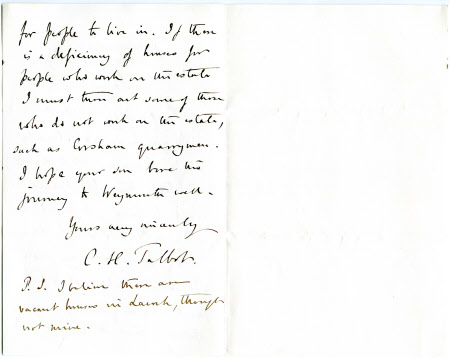 for people to live in. If there
is a deficiency of houses for
people who work on the estate
I must turn out some of those
who do not work on the estate,
such as Corsham quarrymen.
I hope your son bore his
journey to Weymouth well.
Yours very sincerely
C. H. Talbot.
P. S. I believe there are
vacant houses in Lacock, though
not mine.